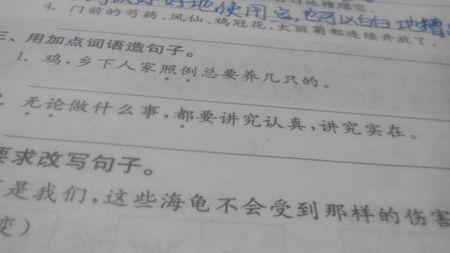 好好地使用它,也可以白白地糟
4. 门前的芍药、凤仙、鸡冠花、大丽菊都连续开放了。
三、用加点词语造句子。
1. 鸡,乡下人家照例总要养几只的。
无论做什么事,都要讲究认真,讲究实在。
要求改写句子。
是我们,这些海龟不会受到那样的伤害
变)